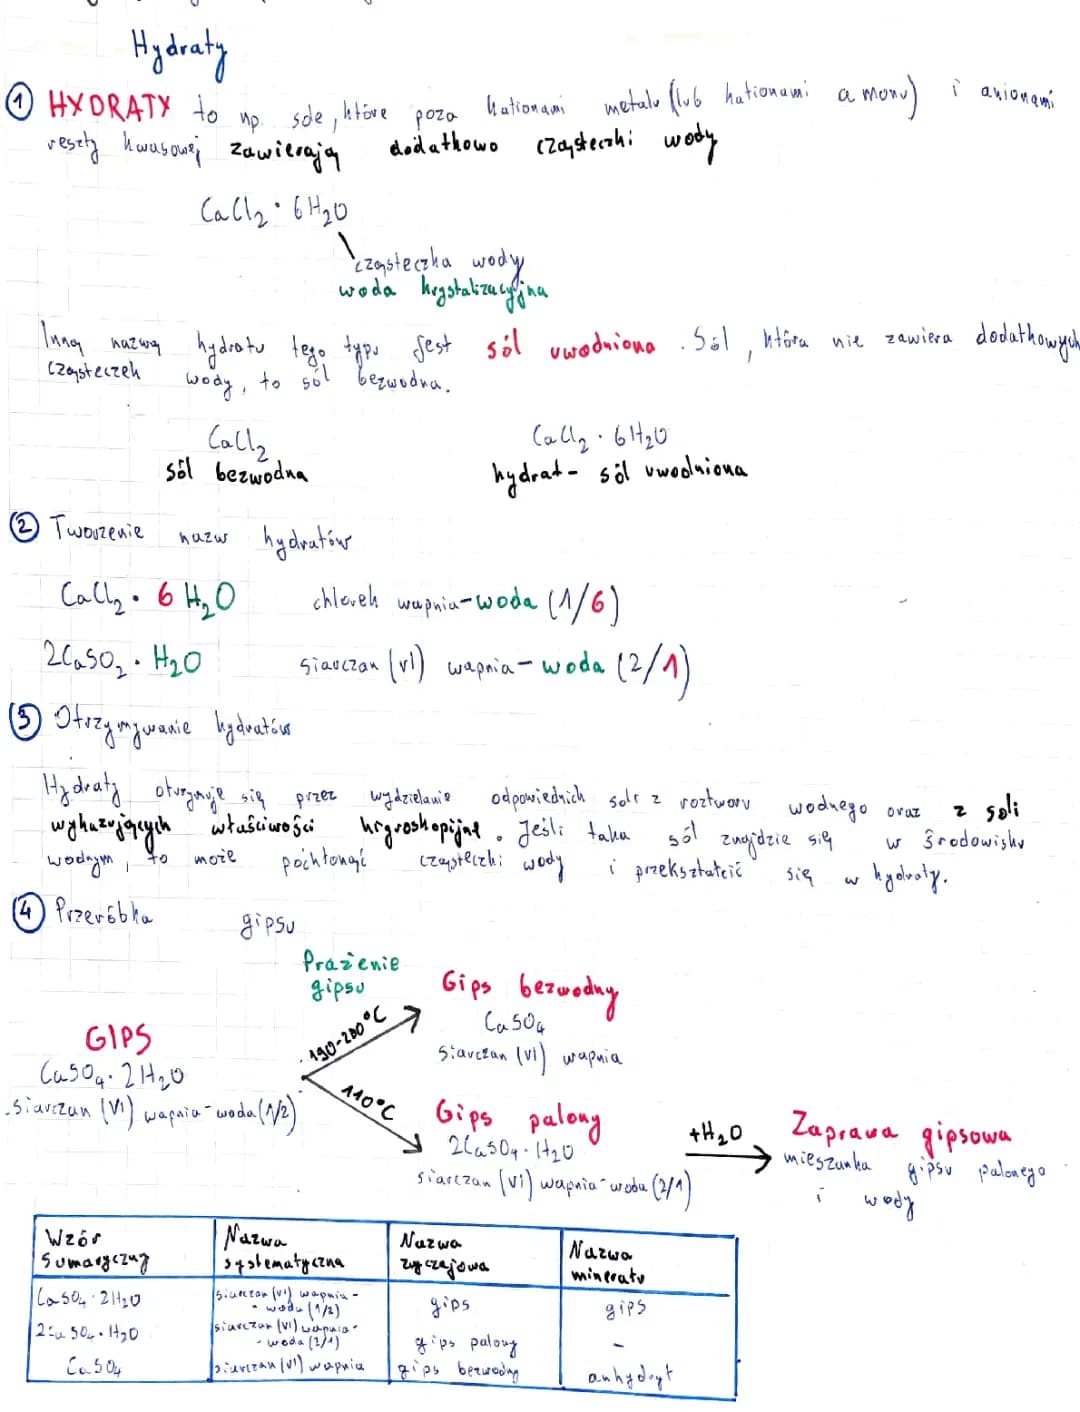 Hydraty
① HYDRATY to np. sole, które poza kationami metalu (lub kationami amonu) i anionami
reszty kwasowej zawierają dodatkowo cząsteczki wody
CaCl₂ · 6H₂O
cząsteczka wody
woda krystalizacyjna
Inną nazwą hydratu tego typu jest sól uwodniona. Sól, która nie zawiera dodatkowych
cząsteczek wody, to sól bezwodna.
CaCl₂ CaCl₂ · 6H₂O
sól bezwodna hydrat - sól uwodniona
② Tworzenie nazw hydratów
CaCl₂ · 6 H₂O chlorek wapnia-woda (1/6)
2CaSO₂ · H₂O siarczan (VI) wapnia-woda (2/1)
③ Otrzymywanie hydratów
Hydraty otrzymuje się przez wydzielanie odpowiednich soli z roztworu wodnego oraz z soli
wykazujących właściwości higroskopijne. Jeśli taka sól znajdzie się w środowisku
wodnym, to może pochłonąć cząsteczki wody i przekształcić się w hydraty.
④ Przeróbka gipsu
Prażenie
gipsu
190-200°C
Gips bezwodny
CaSO₄
siarczan (VI) wapnia
GIPS
CaSO₄ · 2H₂O
siarczan (VI) wapnia-woda (1/2)
110°C
Gips palony
2CaSO₄ · H₂O
siarczan (VI) wapnia-woda (2/1)
+H₂O
Zaprawa gipsowa
mieszanka gipsu palonego
i wody
Wzór sumaryczny Nazwa systematyczna Nazwa zwyczajowa Nazwa minerału
CaSO₄ · 2H₂O siarczan (VI) wapnia-
-woda (1/2) gips gips
2CaSO₄ · H₂O siarczan (VI) wapnia-
-woda (2/1) gips palony -
CaSO₄ siarczan (VI) wapnia gips bezwodny anhydryt